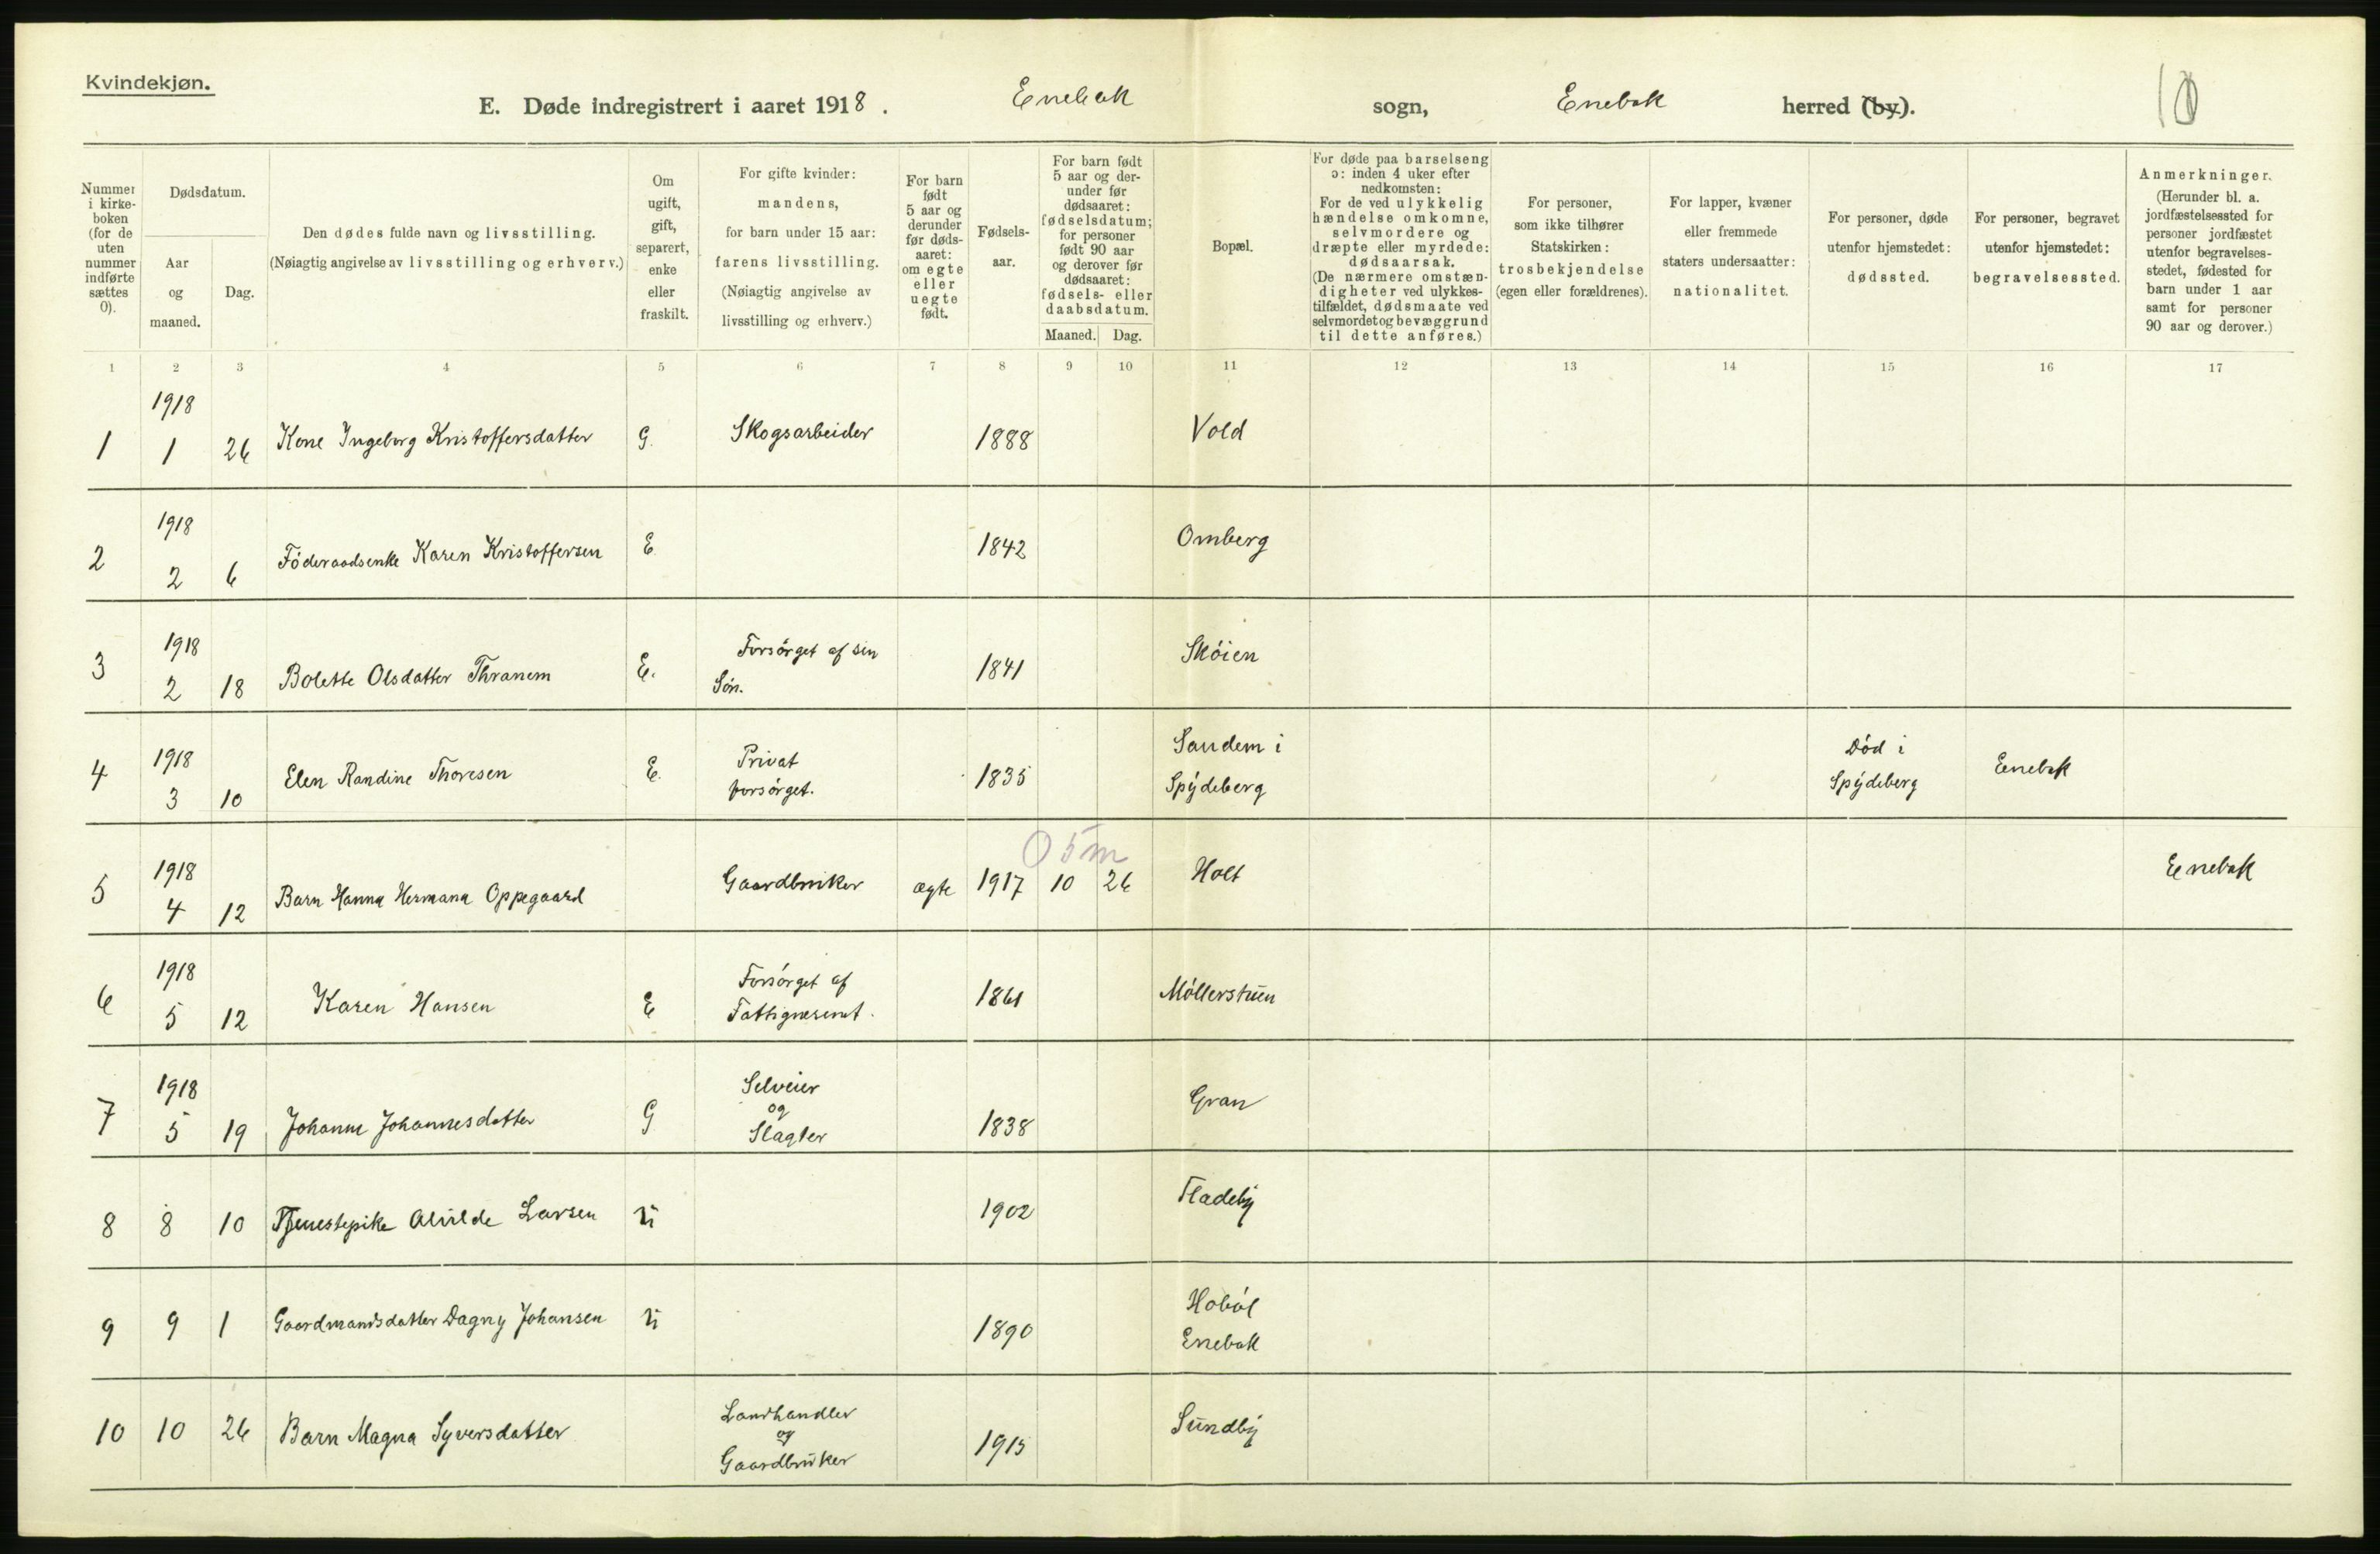 Kvindekjøn.
E. Døde indregistrert i aaret 1918. Enebak sogn, Enebak herred (by).
10
Nummer i kirkeboken (for de uten nummer indførte sættes 0).
Dødsdatum.
Aar og maaned.
Dag.
Den dødes fulde navn og livsstilling.
(Nøiagtig angivelse av livsstilling og erhverv.)
Om ugift, gift, separert, enke eller fraskilt.
For gifte kvinder: mandens, for barn under 15 aar: farens livsstilling. (Nøiagtig angivelse av livsstilling og erhverv.)
For barn født 5 aar og derunder før dødsaaret: om egte eller uegte født.
Fødselsaar.
For barn født 5 aar og derunder før dødsaaret: fødselsdatum; for personer født 90 aar og derover før dødsaaret: fødsels- eller daabsdatum.
Maaned. Dag.
Bopæl.
For døde paa barselseng ɔ: inden 4 uker efter nedkomsten: For de ved ulykkelig hændelse omkomne, selvmordere og dræpte eller myrdede: dødsaarsak. (De nærmere omstændigheter ved ulykkestilfældet, dødsmaate ved selvmordet og bevæggrund til dette anføres.)
For personer, som ikke tilhører Statskirken: trosbekjendelse (egen eller forældrenes).
For lapper, kvæner eller fremmede staters undersaatter: nationalitet.
For personer, døde utenfor hjemstedet: dødssted.
For personer, begravet utenfor hjemstedet: begravelsessted.
Anmerkninger. (Herunder bl. a. jordfæstelsessted for personer jordfæstet utenfor begravelsesstedet, fødested for barn under 1 aar samt for personer 90 aar og derover.)
1 2 3 4 5 6 7 8 9 10 11 12 13 14 15 16 17
1 1918 1 26 Kone Ingeborg Kristoffersdatter G. Skogsarbeider 1888 Vold
2 1918 2 6 Föderaadsenke Karen Kristoffersen E. 1842 Omberg
3 1918 2 18 Bolette Olsdatter Thranem E. Forsörget af sin Sön. 1841 Sköien
4 1918 3 10 Elen Randine Thoresen E. Privat forsörget. 1835 Sandem i Spydeberg Död i Spydeberg Enebak
0 5 m
5 1918 4 12 Barn Hanna Hermana Oppegaard Gaardbruker ægte 1917 10 26 Holt Enebak
6 1918 5 12 Karen Hansen E Forsörget af Fattigvesenet. 1861 Möllerstuen
7 1918 5 19 Johanne Johannesdatter G Selveier og Slagter 1838 Gran
8 8 10 Tjenestepike Alvilde Larsen U 1902 Fladeby
9 9 1 Gaardmandsdatter Dagny Johansen U 1890 Haböl Enebak
10 10 26 Barn Magna Syversdatter Landhandler og Gaardbruker 1915 Sundby